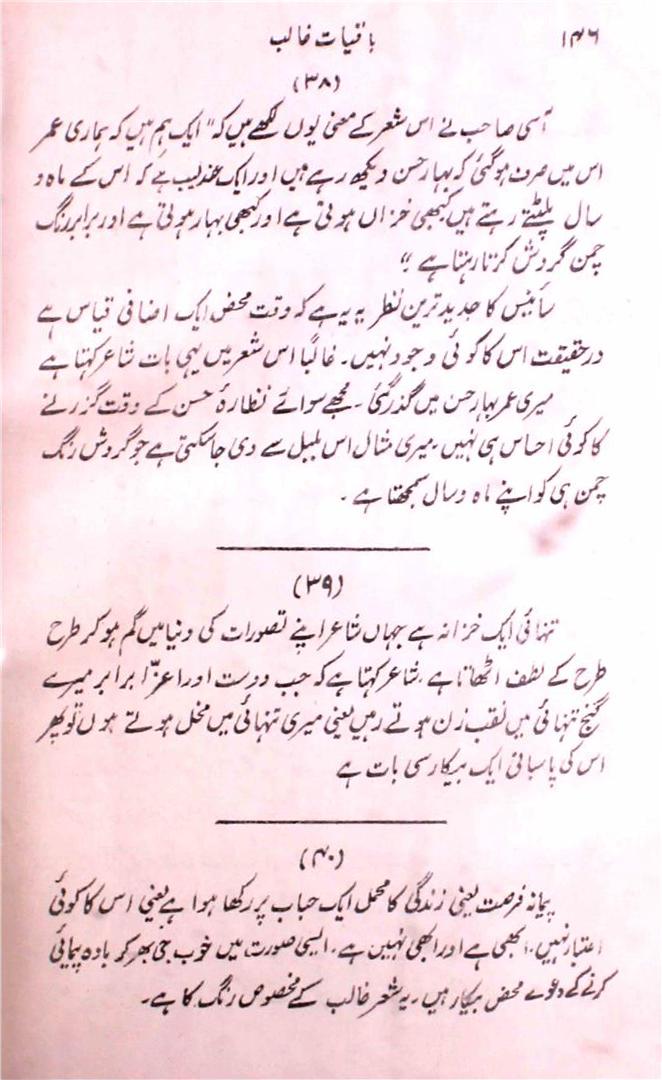 ۱۴۶ باقیات غالب
(۳۸)
آسی صاحب نے اس شعر کے معنی یوں لکھے ہیں کہ " ایک ہم ہیں کہ ہماری عمر
اس میں صرف ہو گئی کہ بہار حسن دیکھ رہے ہیں اور ایک عندلیب ہے کہ اس کے ماہ و
سال پلٹتے رہتے ہیں کبھی خزاں ہوتی ہے اور کبھی بہار ہوتی ہے اور برابر رنگ
چمن گردش کرتا رہتا ہے "
سائینس کا جدید ترین نظریہ یہ ہے کہ وقت محض ایک اضافی قیاس ہے
درحقیقت اس کا کوئی وجود نہیں۔ غالباً اس شعر میں یہی بات شاعر کہتا ہے
میری عمر بہار حسن میں گذر گئی۔ مجھے سوائے نظارۂ حسن کے وقت گزرنے
کا کوئی احساس ہی نہیں۔ میری مثال اس بلبل سے دی جا سکتی ہے جو گردش رنگ
چمن ہی کو اپنے ماہ و سال سمجھتا ہے۔
(۳۹)
تنہائی ایک خزانہ ہے جہاں شاعر اپنے تصورات کی دنیا میں گم ہو کر طرح
طرح کے لطف اٹھاتا ہے۔ شاعر کہتا ہے کہ جب دوست اور اعزّا برابر میرے
گنج تنہائی میں نقب زن ہوتے رہیں یعنی میری تنہائی میں مخل ہوتے ہوں تو پھر
اس کی پاسبانی ایک بیکار سی بات ہے
(۴۰)
پیمانہ فرصت یعنی زندگی کا محمل ایک حباب پر رکھا ہوا ہے یعنی اس کا کوئی
اعتبار نہیں۔ ابھی ہے اور ابھی نہیں ہے۔ ایسی صورت میں خوب جی بھر کر بادہ پیمائی
کرنے کے دعوے محض بیکار ہیں۔ یہ شعر غالب کے مخصوص رنگ کا ہے۔